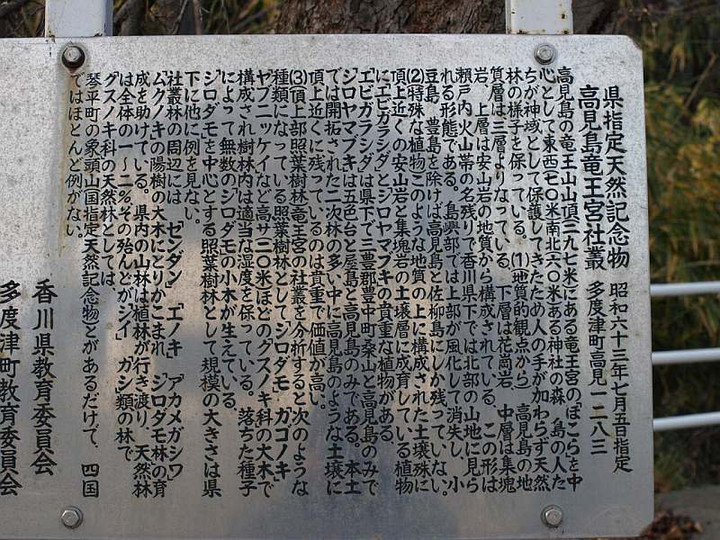 県指定天然記念物　昭和六十三年七月五日指定
高見島竜王宮社叢　多度津町高見一二八三
高見島の竜王山山頂(二九七米)にある竜王宮のほこらを中
心として東西七〇米南北六〇米ある神社の森　島の人た
ちが神域として保護してきたため人の手が加わらず天然
林の様子を保っている。(1)地質的観点から　高見島の地
質層は三層よりなっている　下層は花崗岩　中層は集塊
岩、上層は安山岩の地質から構成されている　この形は
瀬戸内火山帯の名残りで香川県下では北部の山地に見ら
れる形態である。島嶼部では上部が風化して消失し　小
豆島　豊島を除けば高見島と佐柳島にしか残っていない。
(2)特殊な植物　このような地質の上に構成された土壌殊に
頂上近くの安山岩と集塊岩の土壌層に成育している植物
にエビガラシダとジロヤマブキの貴重な植物がある。
エビガラシダは県下で三豊郡豊中町桑山と高見島のみで
ジロヤマブキは五色台と屋島と高見島のみである。本土
では開拓された二次林の多い中に高見島のような土壌に
頂上近くに残っているのは貴重で価値が高い。
(3)頂上部照葉樹林竜王宮の社叢を分析すると次のような
種類になっている照葉樹林としてジロダモ　カゴノキ
ヤブニッケイなど高サ二〇米ほどのクスノキ科の大木で
構成され樹林内は適当な湿度を保っている。落ちた種子
によって無数のジロダモの小木が生えている。
ジロダモを中心とする照葉樹林として規模の大きさは県
下に他に例を見ない。
社叢林の周辺には　センダン　エノキ　アカメガシワ
ムクノキの陽樹の大木にとりかこまれ　ジロダモ林の育
成を助けている。県内の山林は植林が行き渡り、天然林
は全体の一～二％その殆んどがシイ　カシ類の林で
クスノキ科の天然林としては
琴平町の象頭山(国指定天然記念物)とがあるだけで、四国
ではほとんど例がない。
香川県教育委員会
多度津町教育委員会